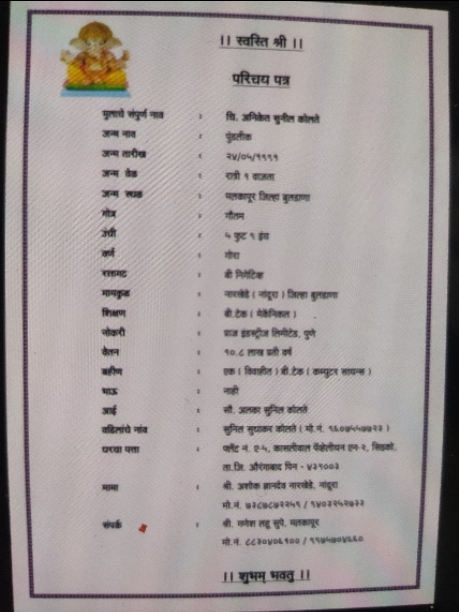 ।। स्वस्ति श्री ।।
परिचय पत्र
मुलाचे संपुर्ण नाव : चि. अनिकेत सुनील कोलते
जन्म नाव : पुंडलीक
जन्म तारीख : २४/०५/१९९१
जन्म वेळ : रात्री १ वाजता
जन्म स्थळ : मलकापूर जिल्हा बुलडाणा
गोत्र : गौतम
उंची : ५ फुट ९ इंच
वर्ण : गोरा
रक्तगट : बी निगेटिव्ह
मामकुळ : नारखेडे ( नांदूरा ) जिल्हा बुलडाणा
शिक्षण : बी.टेक ( मेकॅनिकल )
नोकरी : प्राज इंडस्ट्रीज लिमीटेड, पुणे
वेतन : १०.८ लाख प्रती वर्ष
बहीण : एक ( विवाहीत ) बी.टेक ( कम्पुटर सायन्स )
भाऊ : नाही
आई : सौ. अलका सुनिल कोलते
वडिलांचे नांव : सुनिल सुधाकर कोलते ( मो.नं. ९६०७५५७७२३ )
घरचा पत्ता : फ्लॅट नं. ए-५, कासलीवाल पॅव्हेलीयन एन-२, सिडको,
ता.जि. औरंगाबाद पिन - ४३१००३
मामा : श्री. अशोक ज्ञानदेव नारखेडे, नांदूरा
मो.नं. ७३८७८७२२५१ / ९४०३२५२७३३
संपर्क : श्री. गणेश लहू सुपे, मलकापूर
मो.नं. ८८३०४०६१०० / ९९७५७०४६६०
।। शुभम् भवतु ।।